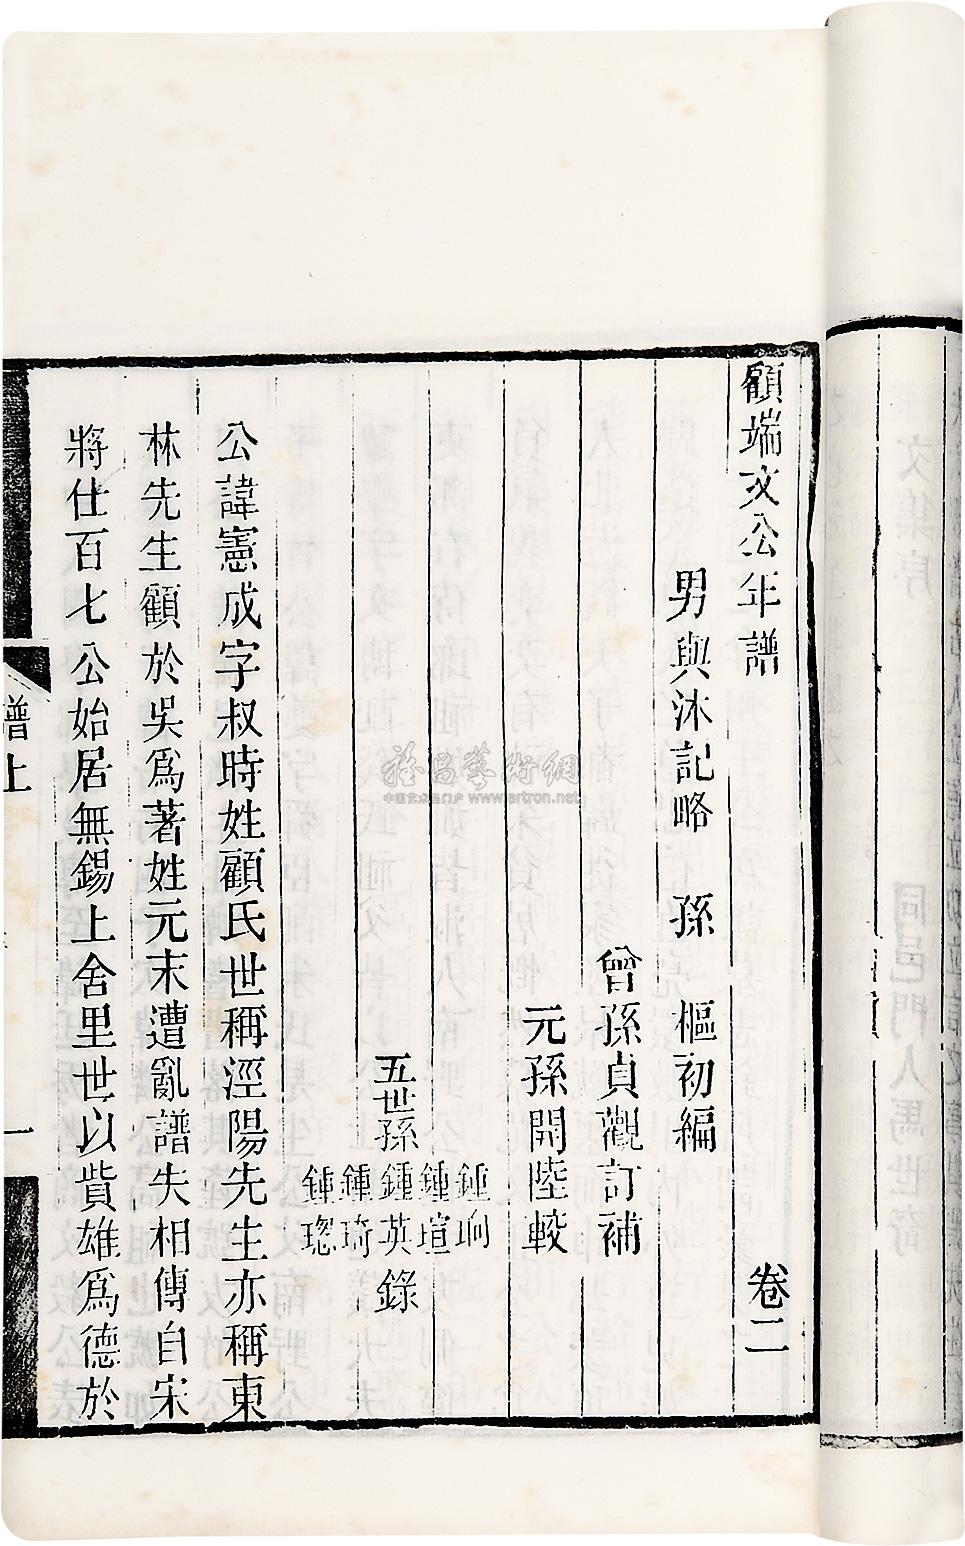 顧端文公年譜　卷二
男與沐記略　孫　樞初編
曾孫貞觀訂補
元孫開陸較
鍾珦
鍾瑄
五世孫鍾英錄
鍾琦
鍾璁
公諱憲成字叔時姓顧氏世稱涇陽先生亦稱東
林先生顧於吳爲著姓元末遭亂譜失相傳自宋
將仕百七公始居無錫上舍里世以貲雄爲德於
譜上
一
雅昌藝術網
中国艺术品门户 www.artron.net